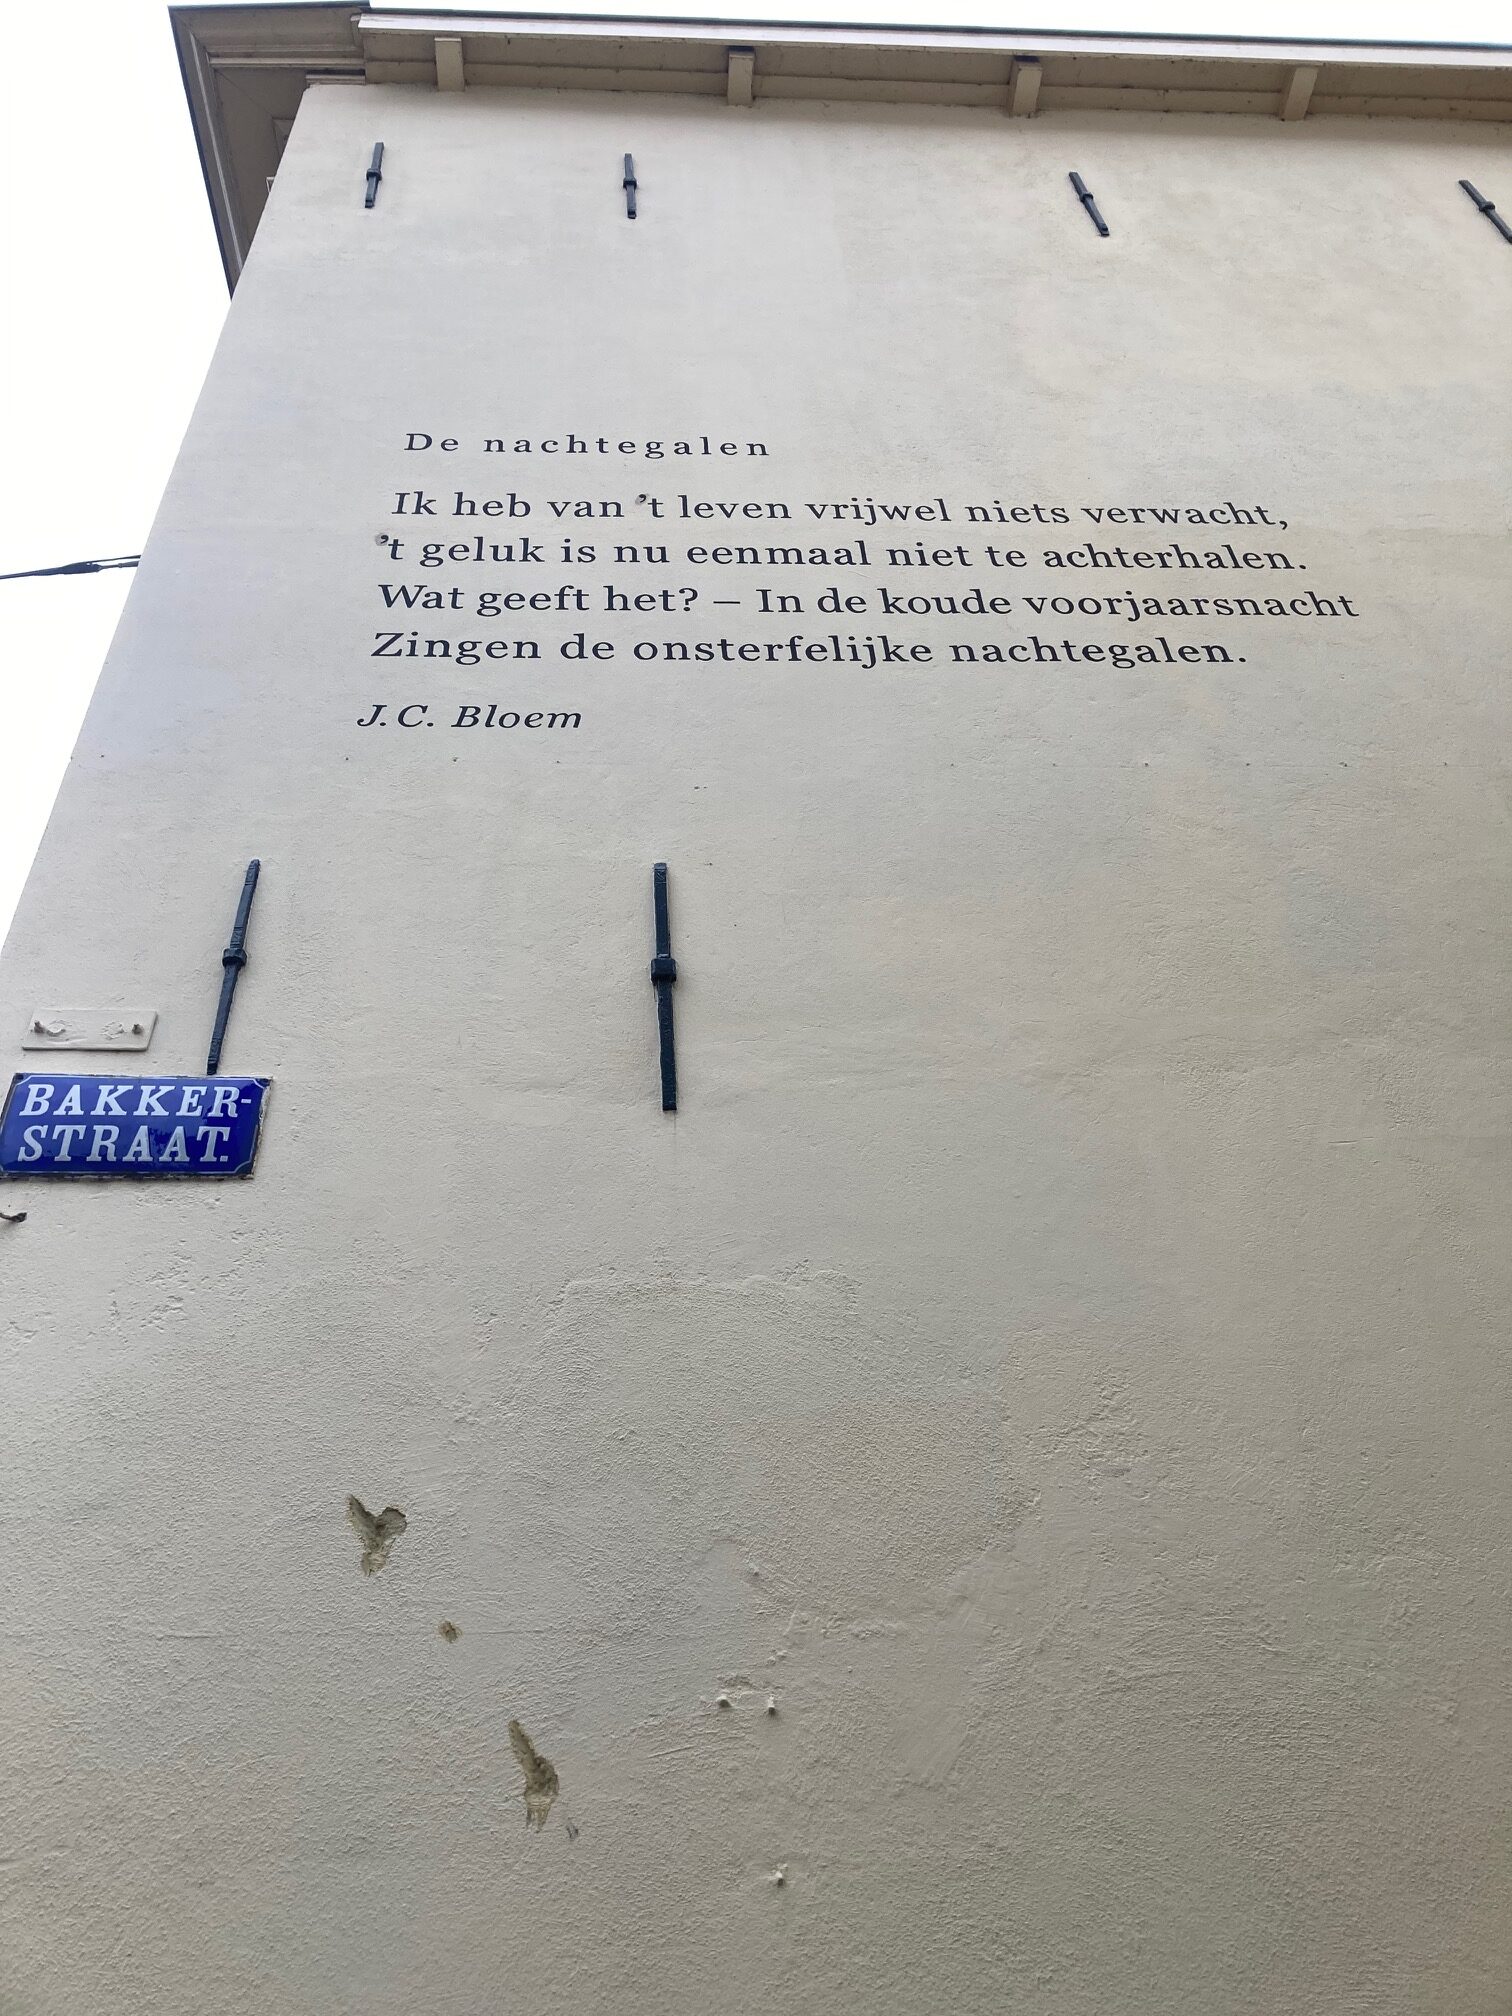 De nachtegalen
Ik heb van ’t leven vrijwel niets verwacht,
’t geluk is nu eenmaal niet te achterhalen.
Wat geeft het? – In de koude voorjaarsnacht
Zingen de onsterfelijke nachtegalen.
J.C. Bloem
BAKKER-
STRAAT.